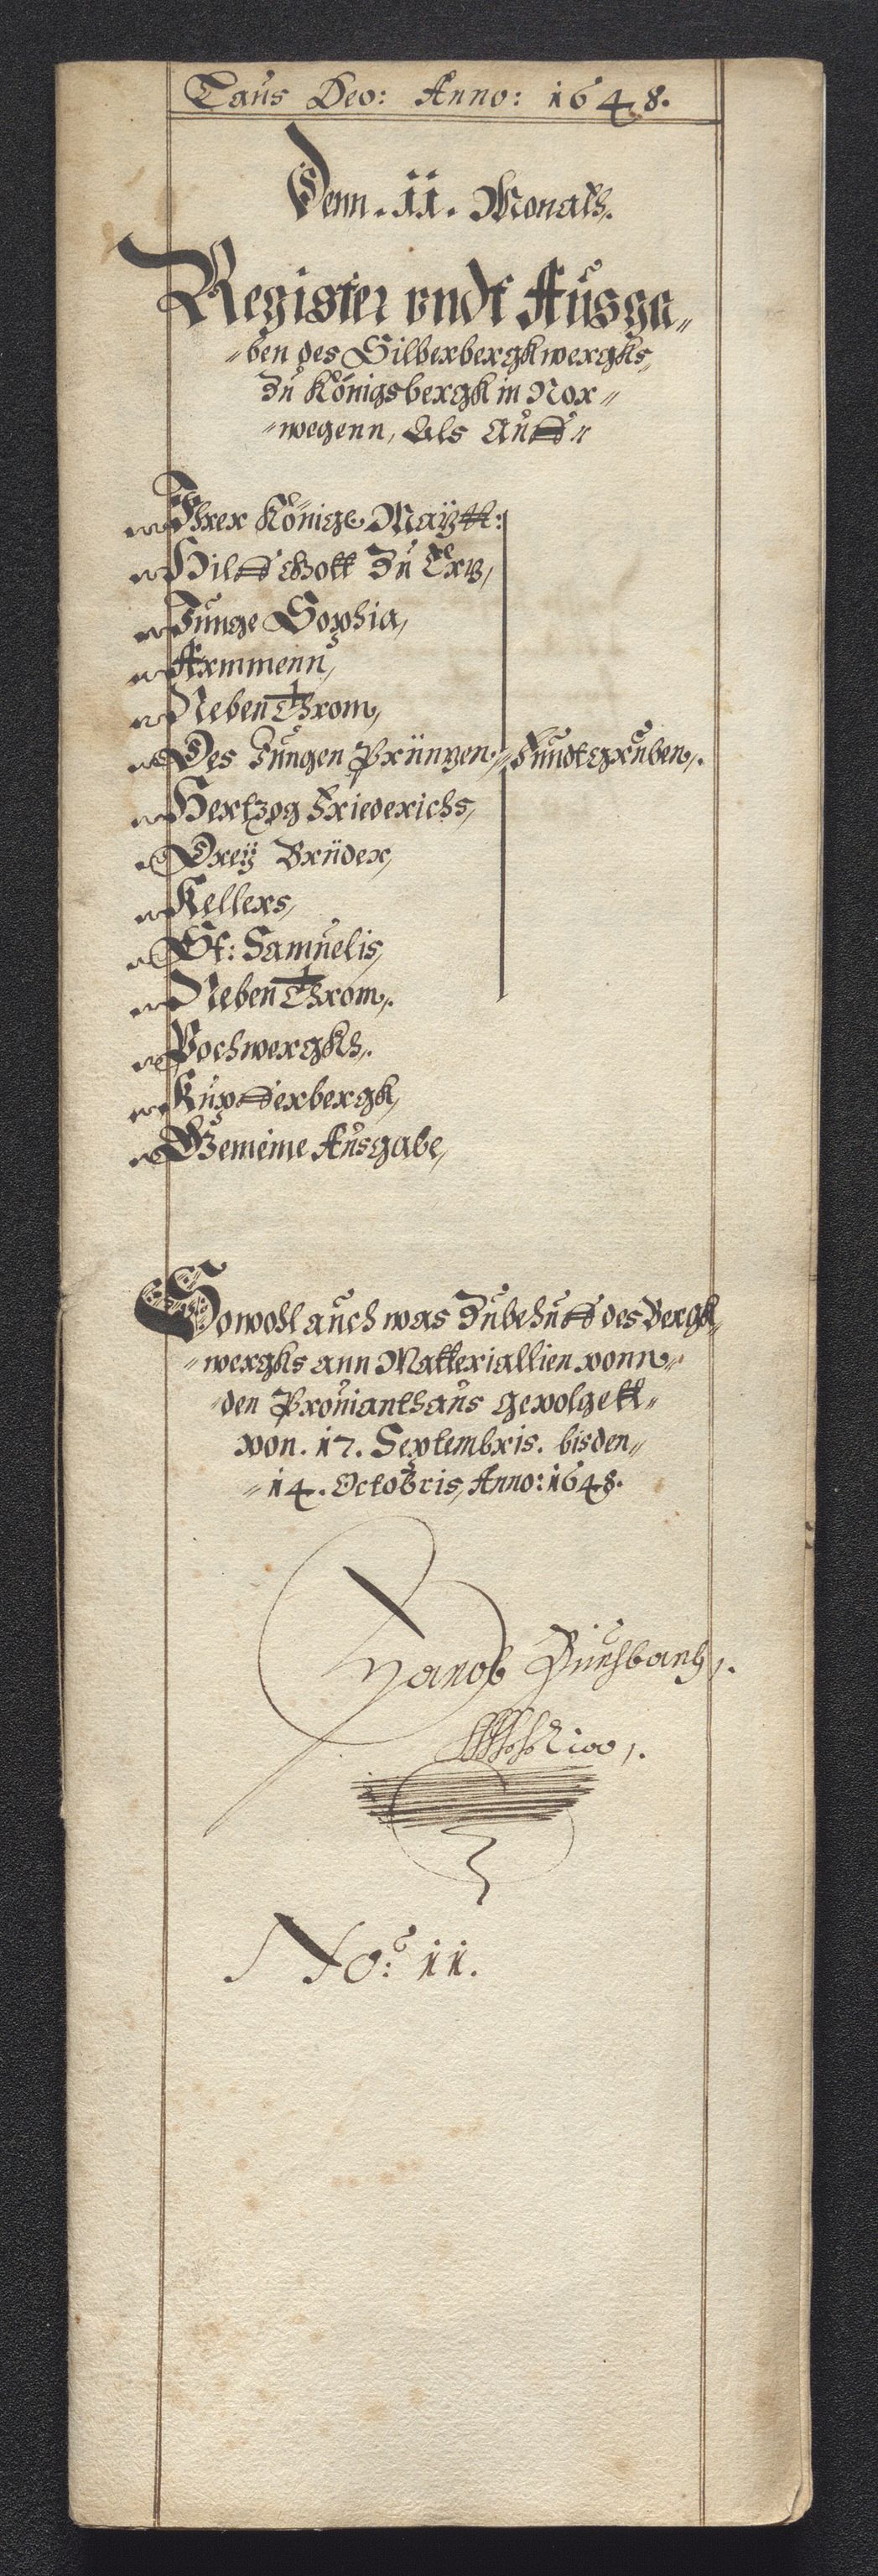 Laus Deo: Anno: 1648.
Denn. 11. Monats.
Register undt Ausga„
„ben des Silberbergkwergks,
Zu Königsbergk in Nor„
„wegenn, Als Auff„
Ihrer Königl. Maÿtt:
Hilff Gott Zu Ertz,
Junge Sophia,
Armmenn,
Neben Throm,
Des Jungen Printzen, Fundtgruben,.
Hertzog Friederichs,
Dreÿ Brüder,
Kellers,
St: Samuelis,
Neben Throm,.
Pochwergkh,.
Kupfferbergk,
Gemeine Ausgabe,
Sowohl auch was Zubehuff des Bergk„
„wergks ann Matteriallien vonn„
„den Provianthaus gevolgett„
von. 17. Septembris. bis den„
„14. Octobris, Anno: 1648.
Jacob
No: 11.